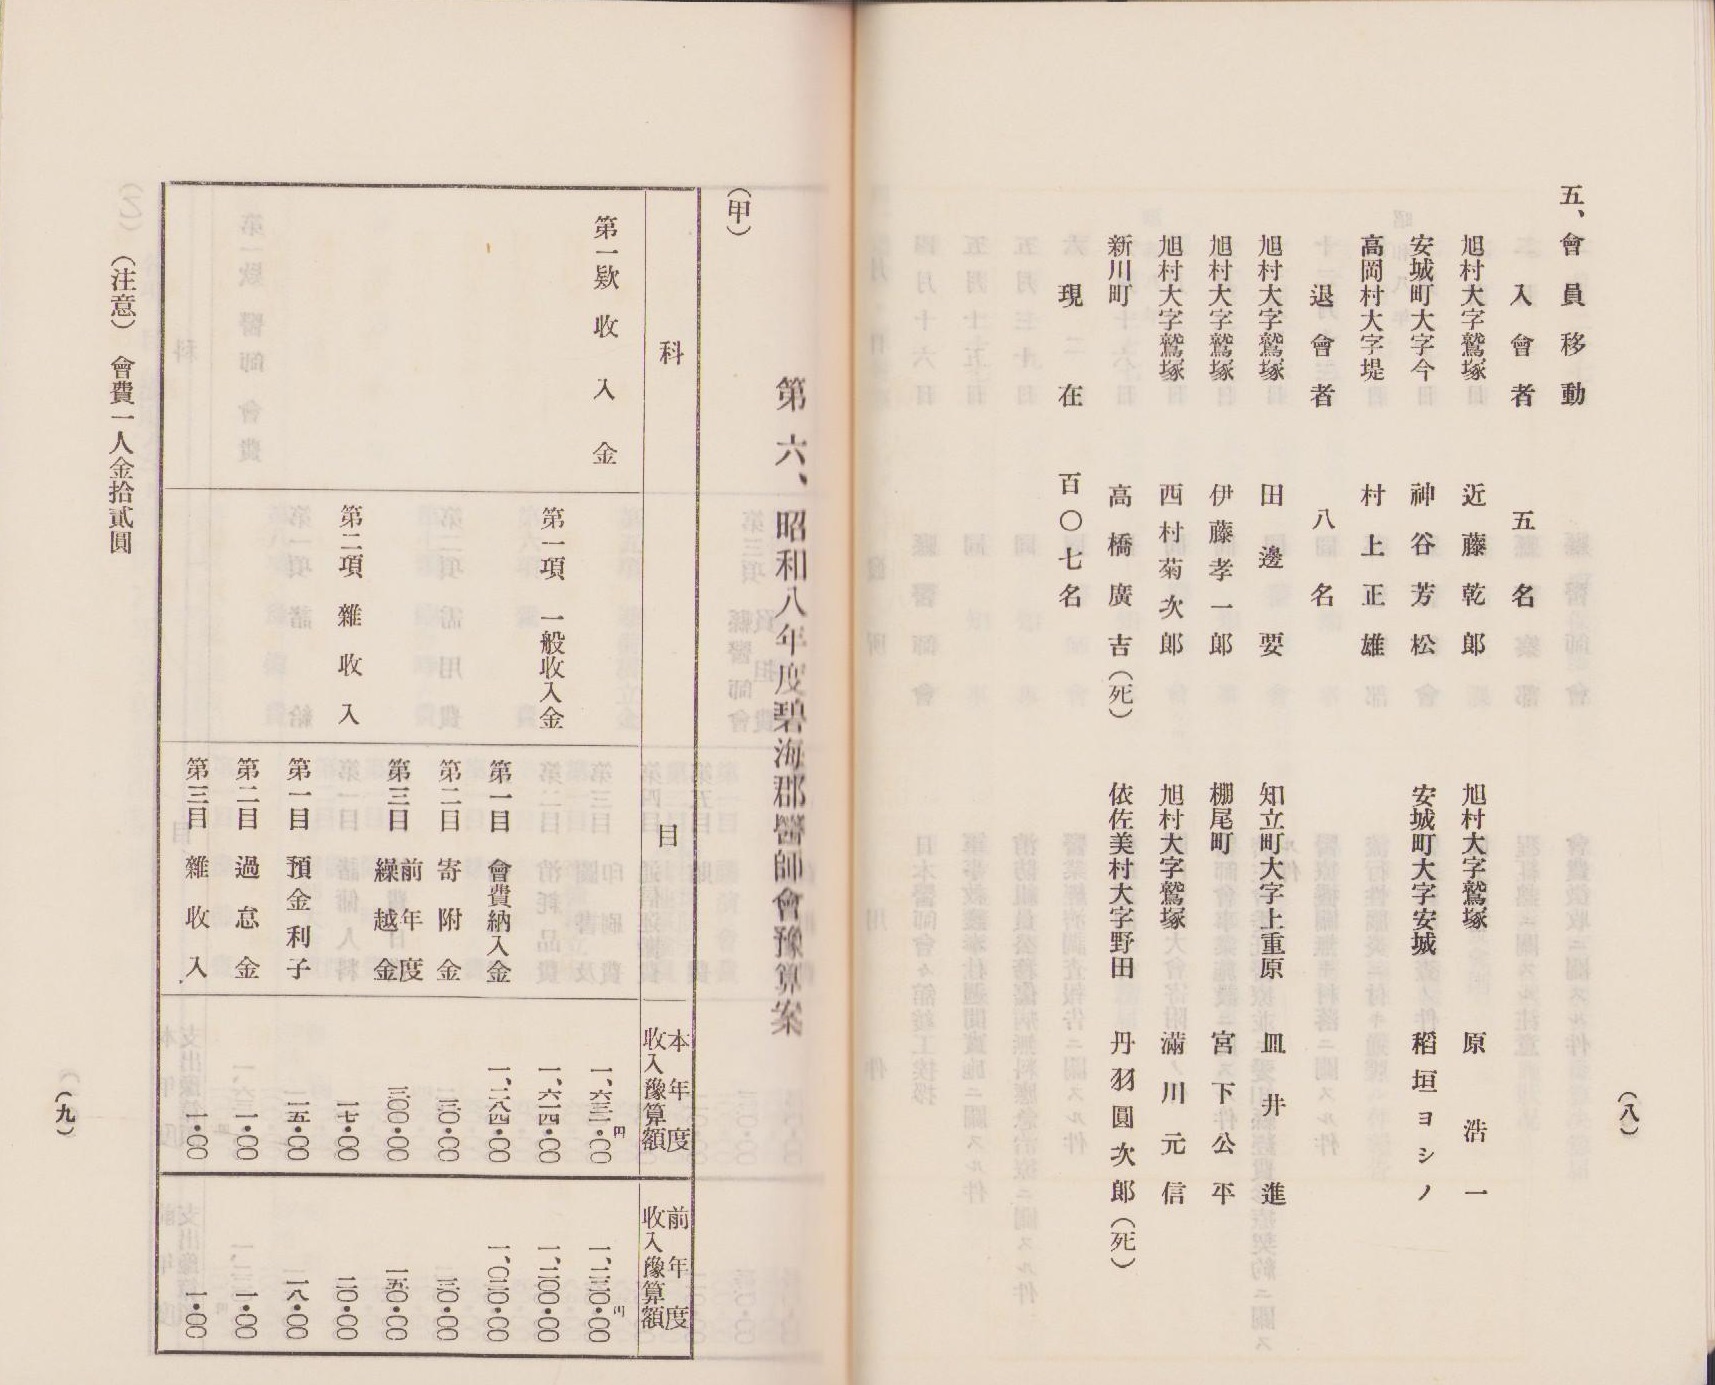 (八)
五、會員移動
入會者 五名
旭村大字鷲塚 近藤乾郎 旭村大字鷲塚 原浩一
安城町大字今 神谷芳松 安城町大字安城 稻垣ヨシノ
高岡村大字堤 村上正雄
退會者 八名
旭村大字鷲塚 田邊要 知立町大字上重原 皿井進
旭村大字鷲塚 伊藤孝一郎 棚尾町 宮下公平
旭村大字鷲塚 西村菊次郎 旭村大字鷲塚 滿川元信
新川町 高橋廣吉(死) 依佐美村大字野田 丹羽圓次郎(死)
現在 百〇七名
第六、昭和八年度碧海郡醫師會豫算案
(甲)
科目 本年度收入豫算額 前年度收入豫算額
第一欵 收入金 一、六三一・〇〇円 一、二三〇・〇〇円
第一項 一般收入金 一、六一四・〇〇 一、二〇〇・〇〇
第一目 會費納入金 一、二八四・〇〇 一、〇二〇・〇〇
第二目 寄附金 三〇・〇〇 三〇・〇〇
第三目 前年度繰越金 三〇〇・〇〇 一五〇・〇〇
第二項 雜收入 一七・〇〇 二〇・〇〇
第一目 預金利子 一五・〇〇 一八・〇〇
第二目 過怠金 一・〇〇 一・〇〇
第三目 雜收入 一・〇〇 一・〇〇
(注意) 會費一人金拾貳圓
(九)